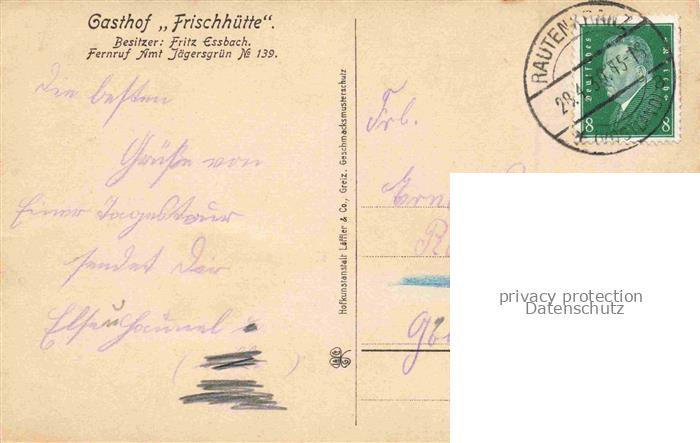 Gasthof „Frischhütte“.
Besitzer: Fritz Essbach.
Fernruf Amt Jägersgrün № 139.
Die besten
Grüße von
Einer Tagestour
sendet Dir
Else u
Hofkunstanstalt Löffler & Co., Greiz. Geschmacksmusterschutz
Frl.
RAUTENKRANZ
Deutsches Reich
8 8
privacy protection
Datenschutz